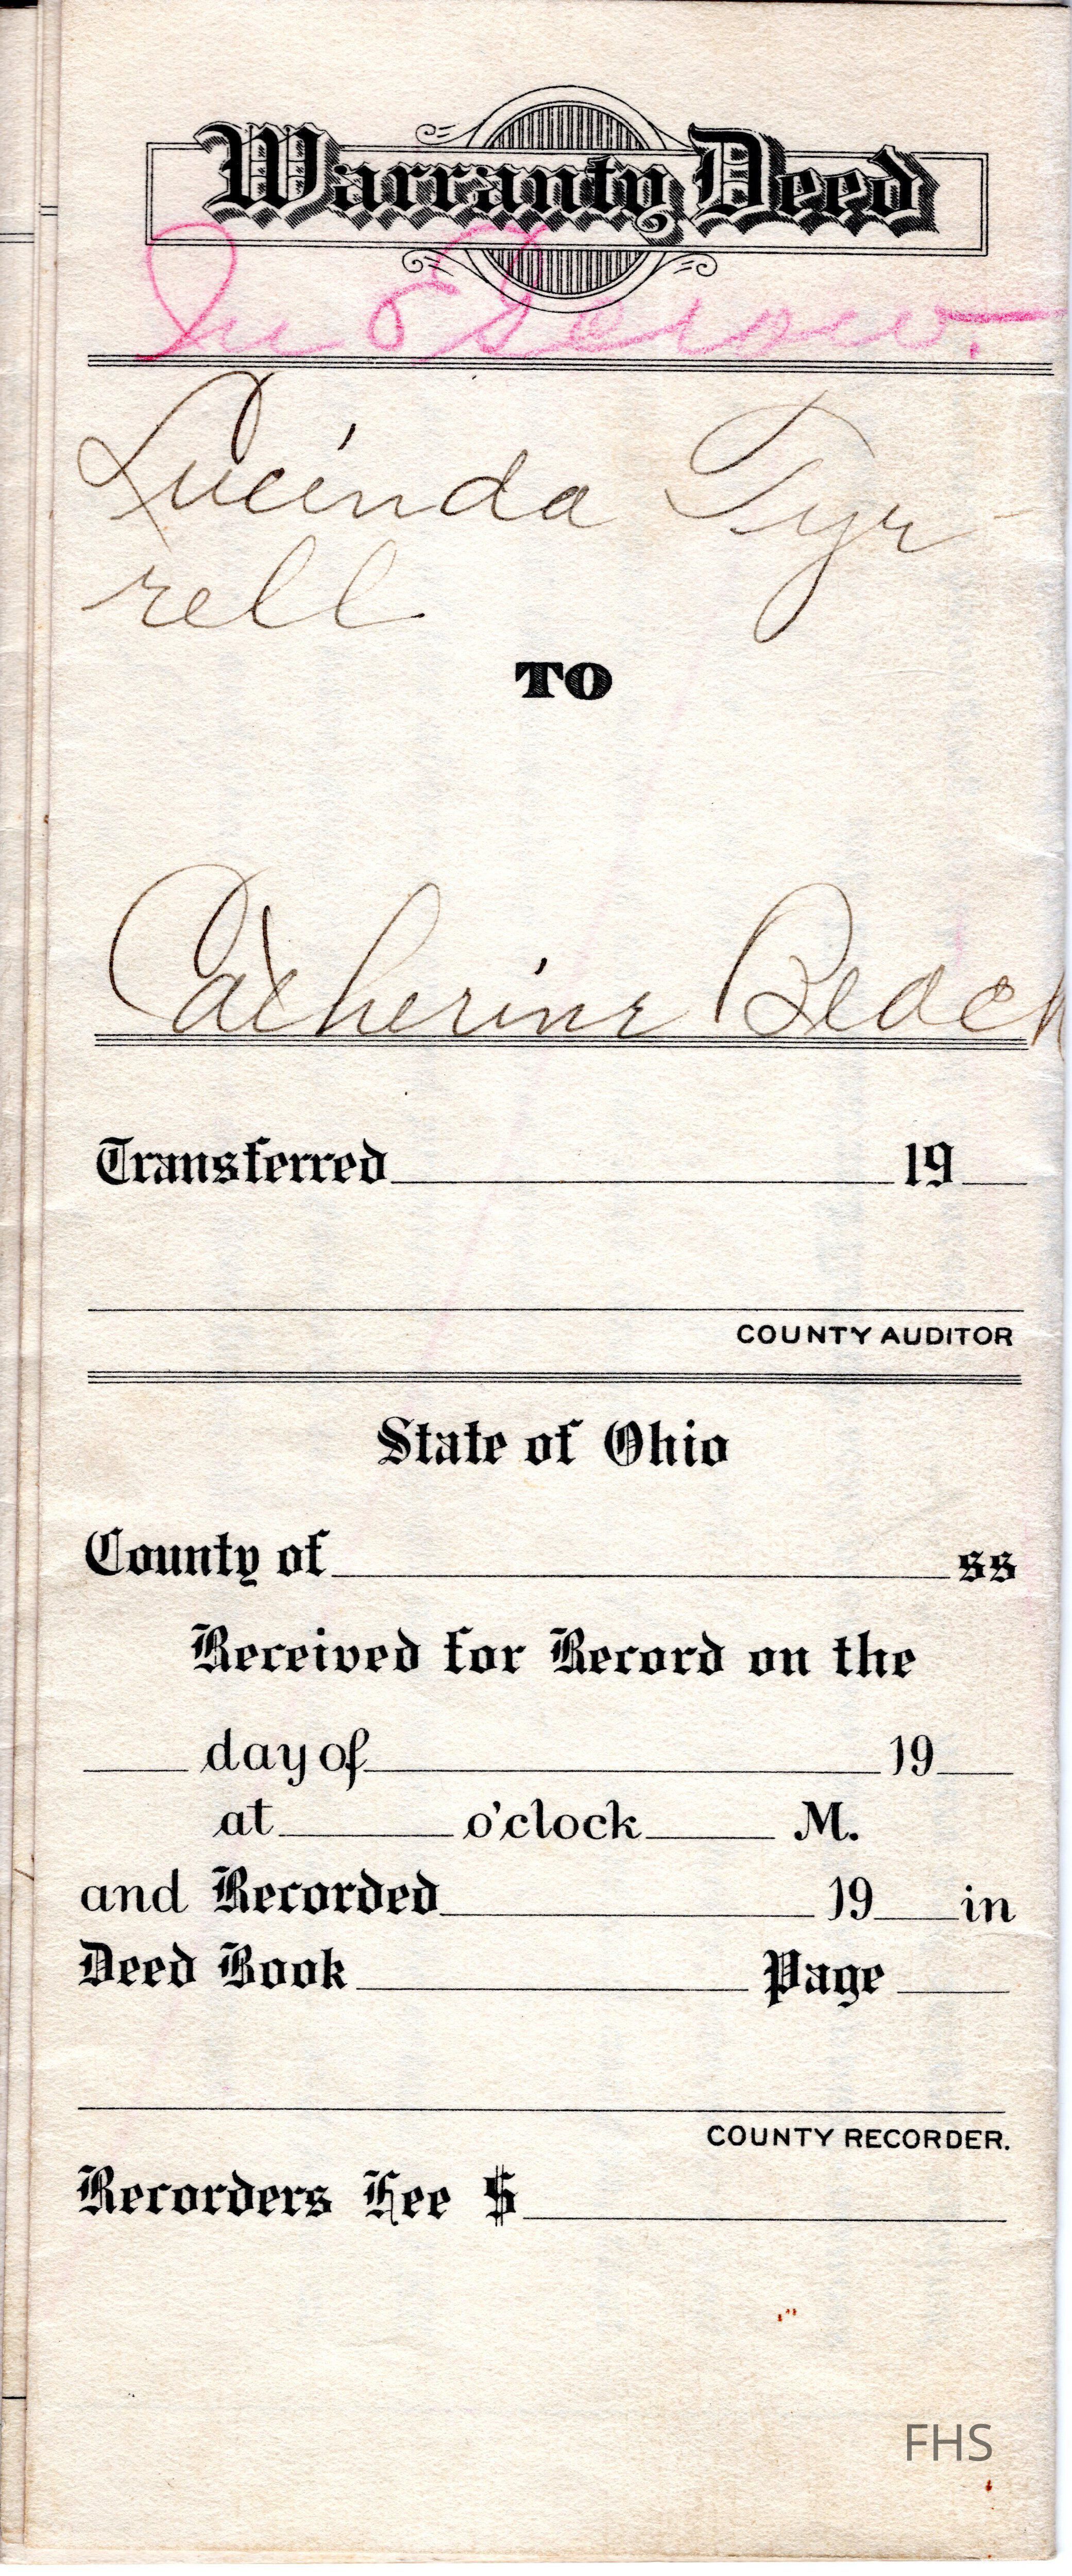 Warranty Deed
In Escrow.
Lucinda Tyr-
rell
TO
Catherine Beach
Transferred 19
COUNTY AUDITOR
State of Ohio
County of ss
Received for Record on the
day of 19
at o'clock M.
and Recorded 19 in
Deed Book Page
COUNTY RECORDER.
Recorders Fee $
FHS